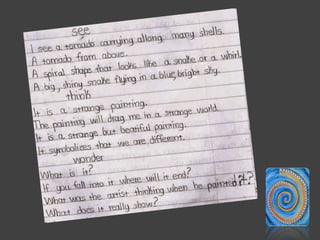 see
I see a tornado carrying allong many shells.
A tornado from above.
A spiral shape that looks like a snake or a whirl.
A big, shiny snake flying in a blue, bright sky.
think
It is a strange painting.
The painting will drag me in a strange world.
It is a strange but beatiful painting.
It symbolizes that we are different.
wonder
What is it?
If you fall into it where will it end?
What was the artist thinking when he painted it?
What does it really show?